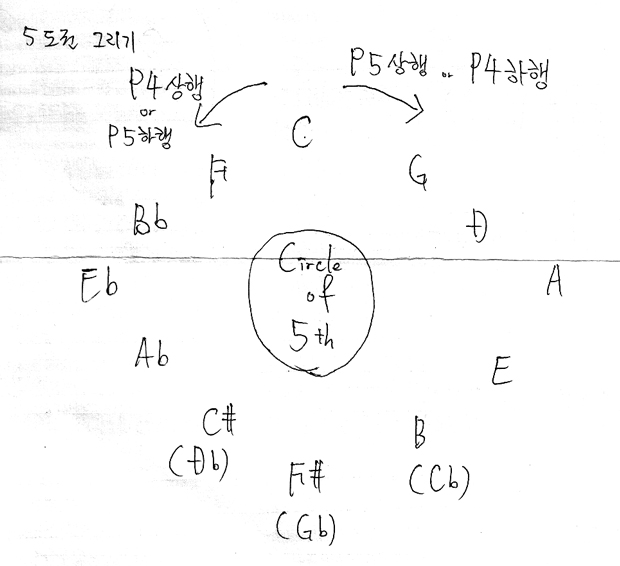 5도권 그리기
P4상행
or
P5하행
P5상행 or P4하행
C
F
G
Bb
D
Eb
A
Circle
of
5th
Ab
E
C#
(Db)
B
(Cb)
F#
(Gb)